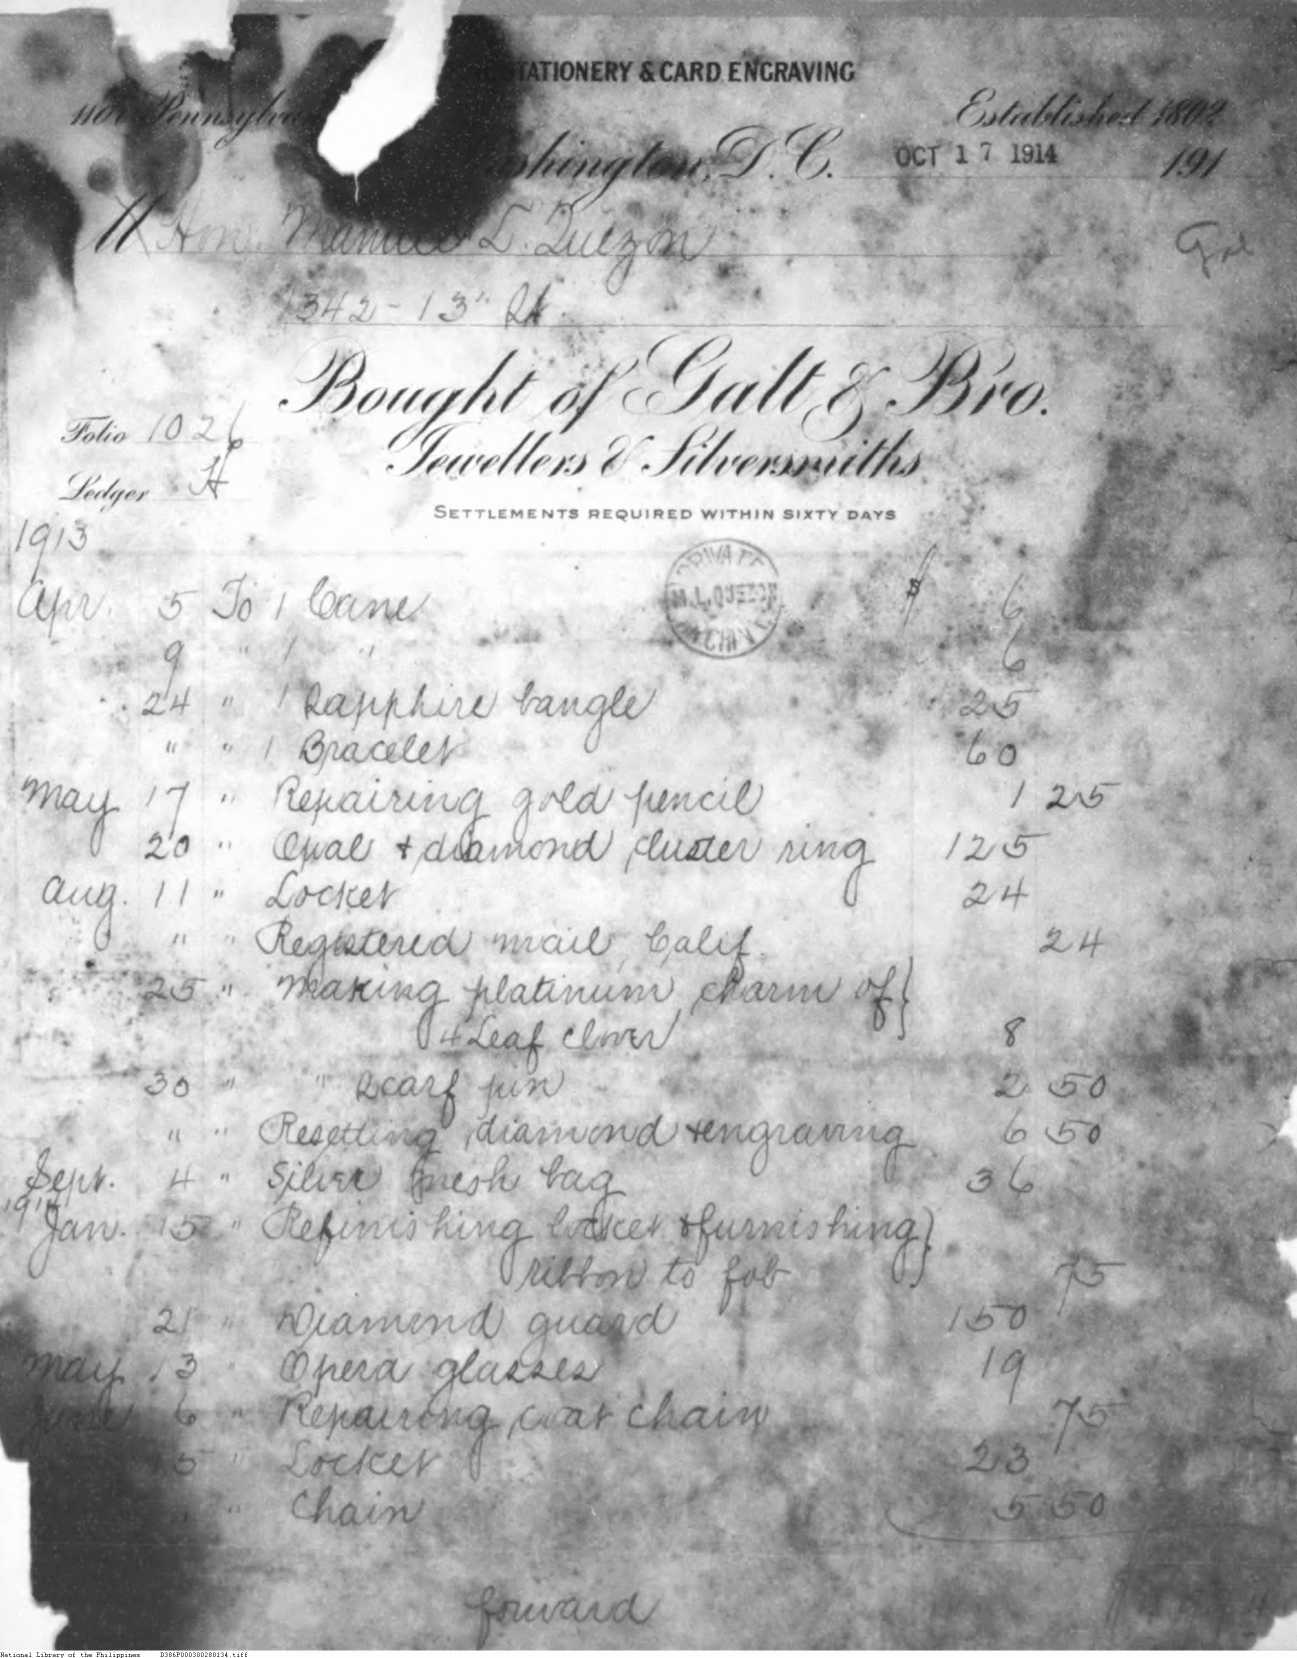 STATIONERY & CARD ENGRAVING
1107 Pennsylva
Established 1802
shington, D. C. OCT 17 1914 191
M Hon. Manuel L. Quezon
1342 - 13" St.
Bought of Galt & Bro.
Jewellers & Silversmiths
Folio 1026
Ledger H
SETTLEMENTS REQUIRED WITHIN SIXTY DAYS
PRIVATE
M.L. QUEZON
ARCHIVES
1913
Apr. 5 To 1 Cane $ 6
9 " 1 " 6
24 " 1 Sapphire bangle 25
" " 1 Bracelet 60
May 17 " Repairing gold pencil 1 25
20 " Opal + diamond cluster ring 125
Aug. 11 " Locket 24
" " Registered mail, Calif. 24
25 " Making platinum charm of }
4 Leaf clover 8
30 " " Scarf pin 2 50
" " Resetting diamond + engraving 6 50
Sept. 4 " Silver mesh bag 36
1914
Jan. 15 " Refinishing locket & furnishing }
ribbon to fob 75
21 " Diamond guard 150
May 13 " Opera glasses 19
June 6 " Repairing coat chain 75
5 " Locket 23
" Chain 5 50
forward
National Library of the Philippines D386P000300280134.tiff